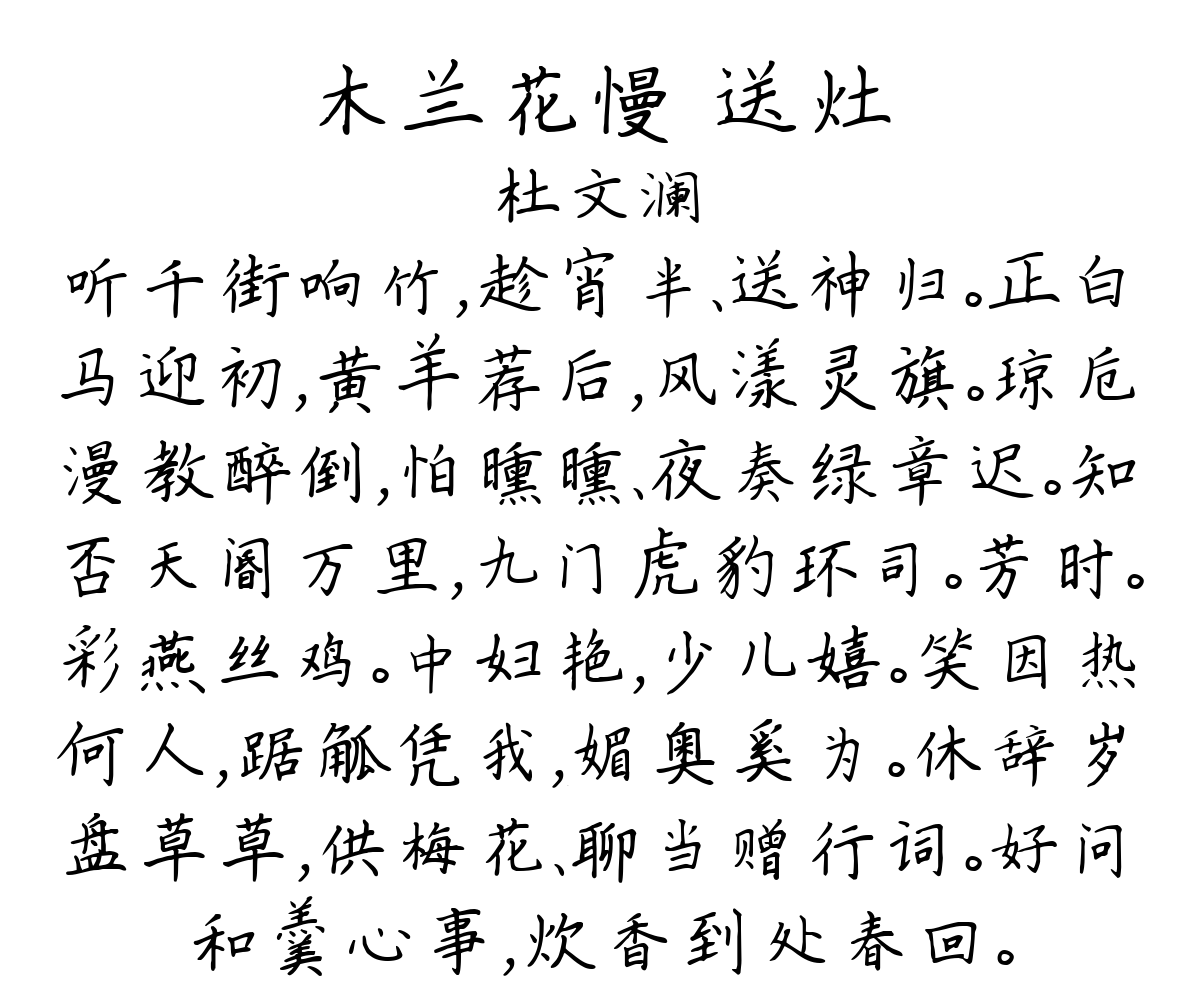 木兰花慢 送灶
杜文澜
听千街响竹,趁宵半、送神归。正白
马迎初,黄羊荐后,风漾灵旗。琼卮
漫教醉倒,怕曛曛、夜奏绿章迟。知
否天阍万里,九门虎豹环司。芳时。
彩燕丝鸡。中妇艳,少儿嬉。笑因热
何人,踞觚凭我,媚奥奚为。休辞岁
盘草草,供梅花、聊当赠行词。好问
和羹心事,炊香到处春回。